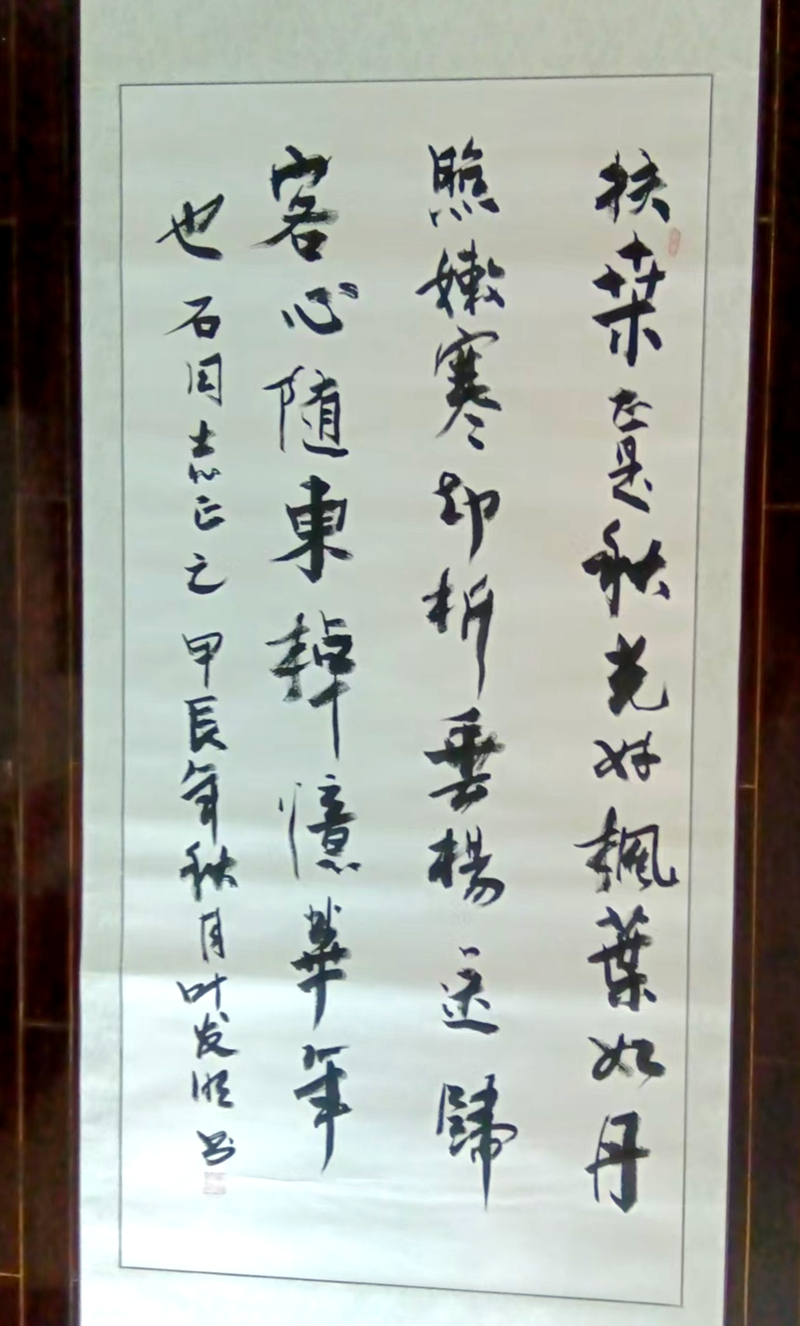 扶桒正是秋光好楓葉如丹
照嫩寒却折垂楊送歸
客心隨東棹憶華年
也 石同志正之 甲辰年秋月叶发 书